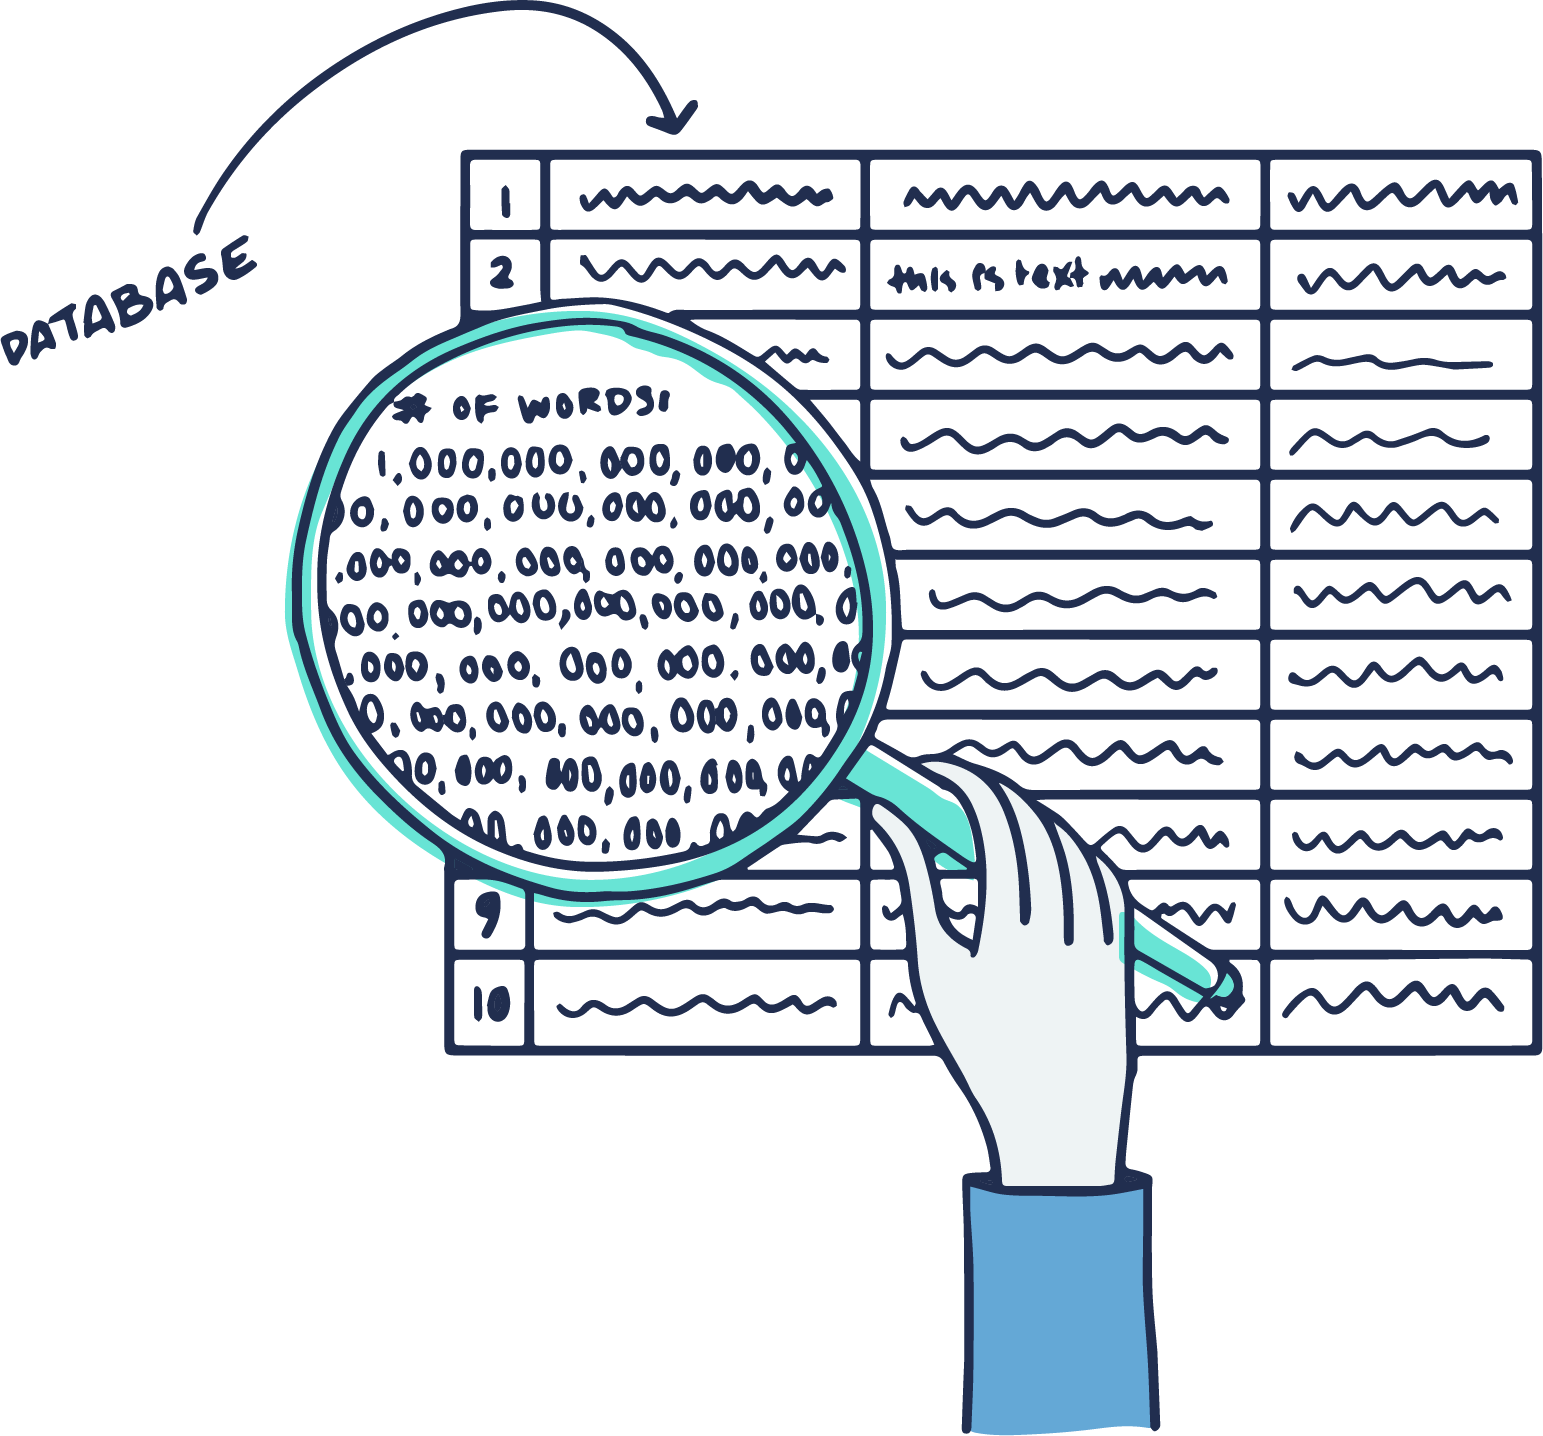 DATABASE
1
2
this is text
# OF WORDS:
1,000,000,000,000,0
00,000,000,000,000,00
,000,000,000,000,000,000,
00,000,000,000,000,000,0
,000,000,000,000,000,00
0,000,000,000,000,000,0
00,000,000,000,000,00
00,000,000,00
9
10